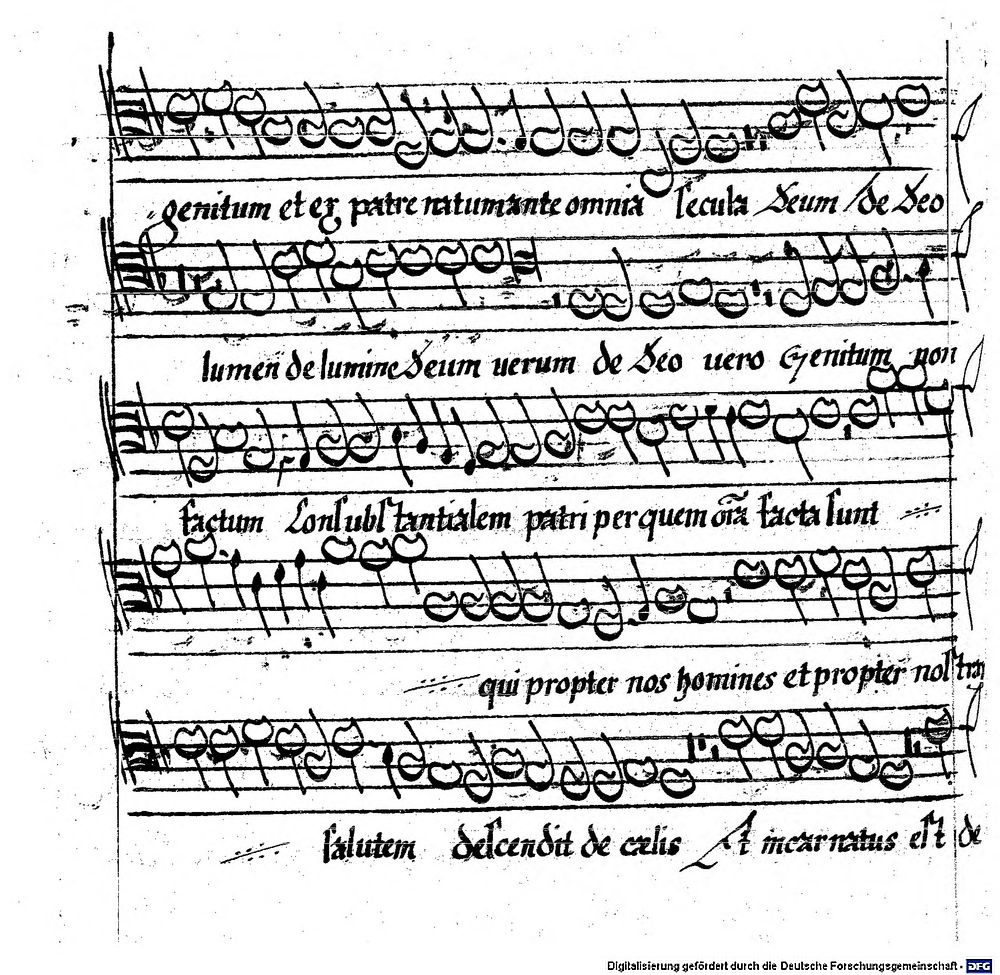 genitum et ex patre natum ante omnia secula Deum de Deo
lumen de lumine Deum uerum de Deo uero Genitum non
factum Consubstantialem patri per quem oĩa facta sunt
qui propter nos homines et propter nostram
salutem descendit de cælis Et incarnatus est de
Digitalisierung gefördert durch die Deutsche Forschungsgemeinschaft - DFG